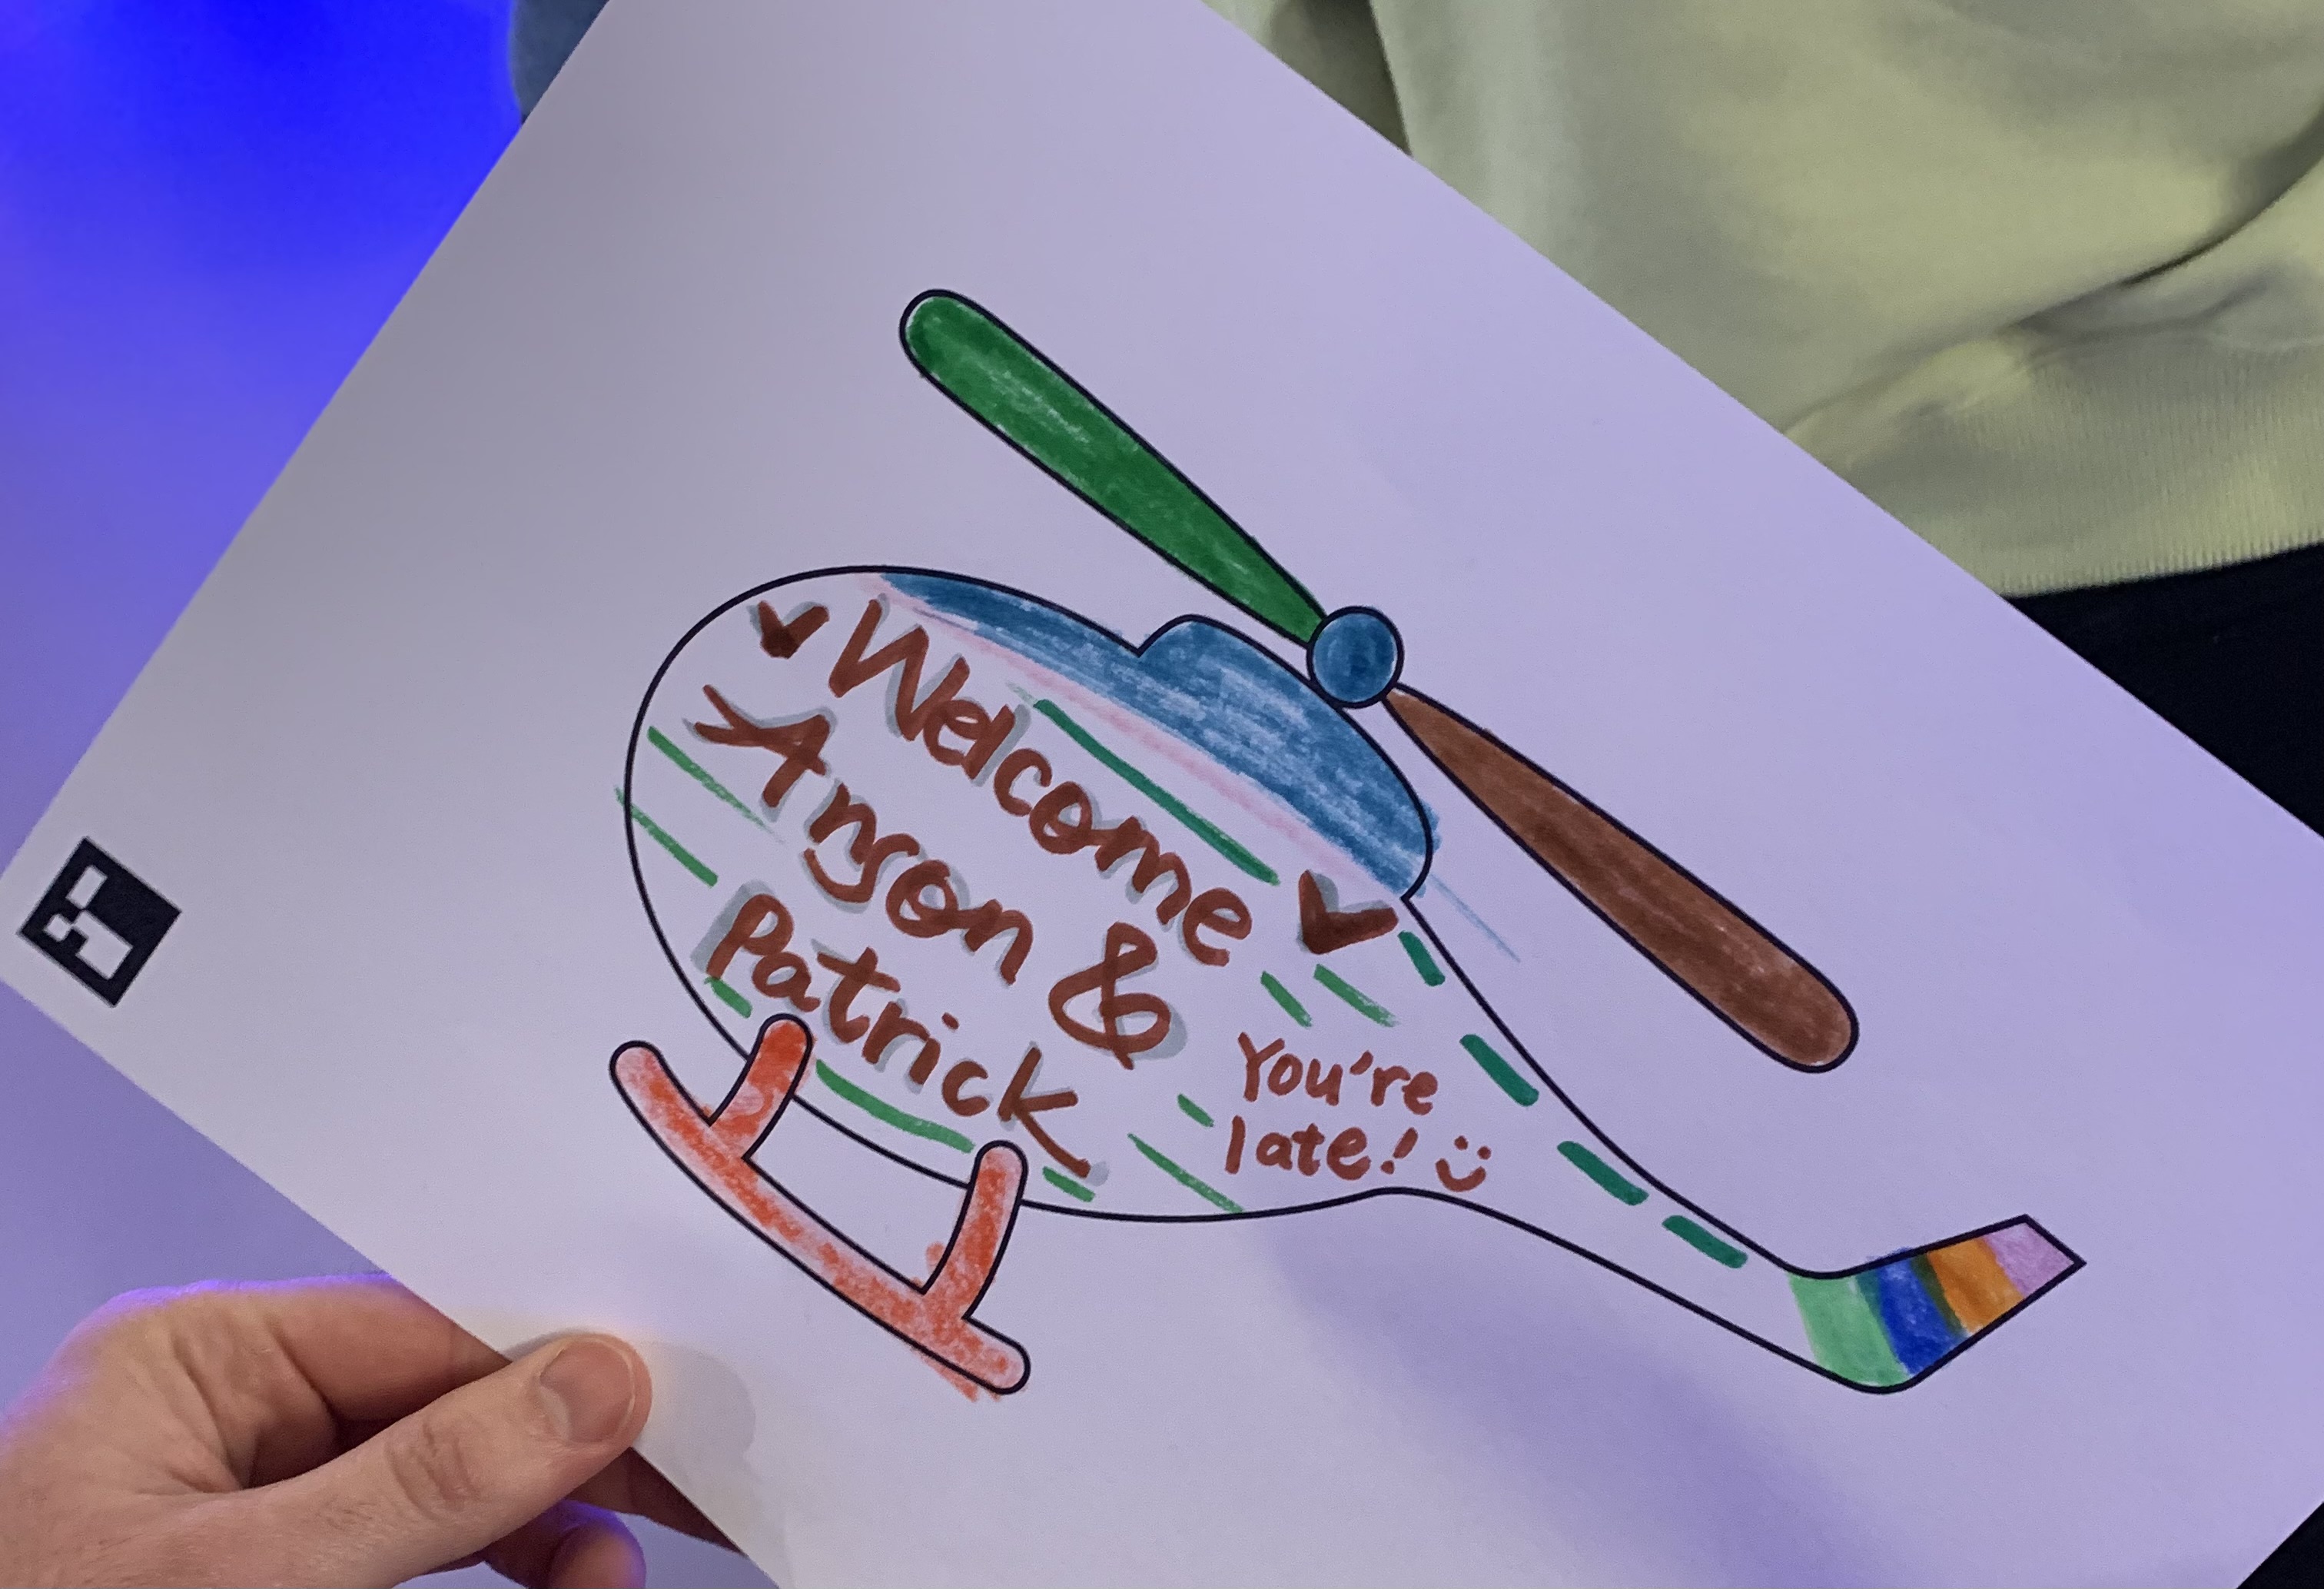 Welcome
Anson &
Patrick
You're
late!